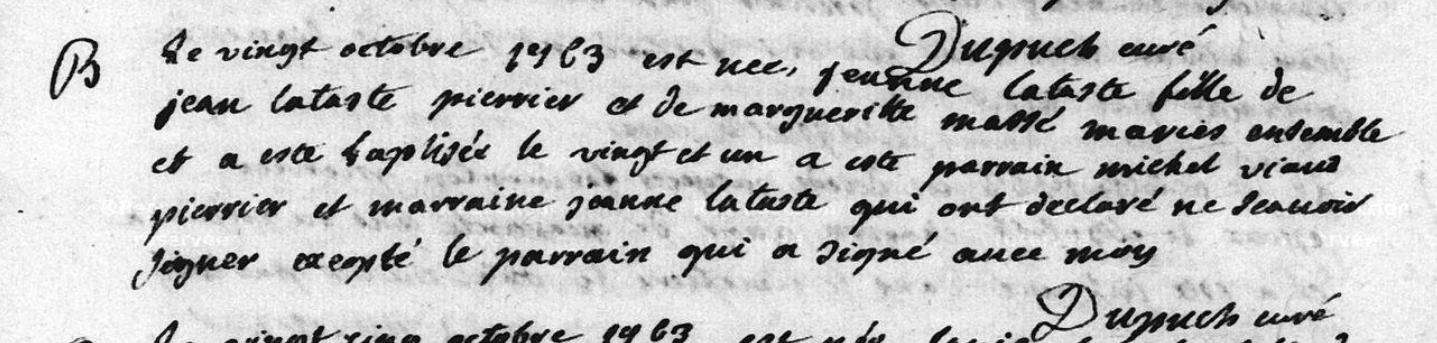 Dupuch curé
B Le vingt octobre 1763 est nee, jeanne lataste fille de
jean lataste pierrier et de margueritte massé mariés ensemble
et a este baptisée le vingt et un a este parrain michel viaud
pierrier et marraine jeanne lataste qui ont declaré ne scauoir
signer exepté le parrain qui a signé auec moy
Dupuch curé
Le vingt cinq octobre 1763 est née